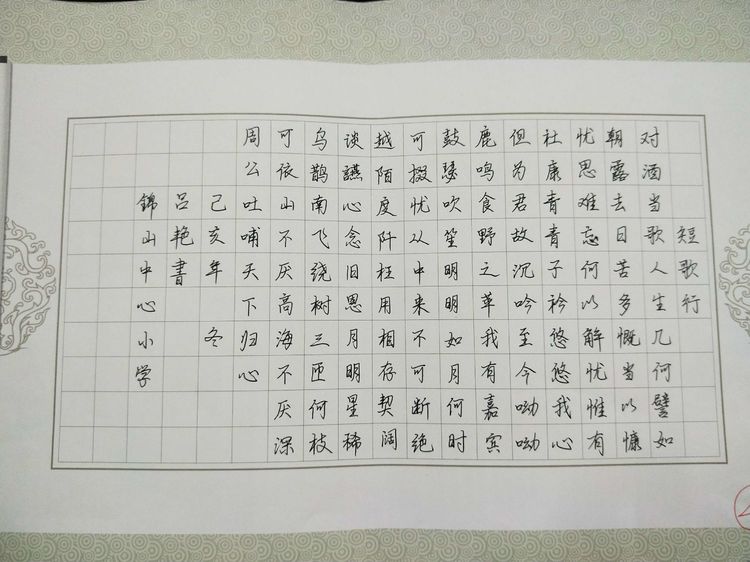 短歌行
对酒当歌人生几何譬如
朝露去日苦多慨当以慷
忧思难忘何以解忧惟有
杜康青青子衿悠悠我心
但为君故沉吟至今呦呦
鹿鸣食野之苹我有嘉宾
鼓瑟吹笙明明如月何时
可掇忧从中来不可断绝
越陌度阡枉用相存契阔
谈讌心念旧恩月明星稀
乌鹊南飞绕树三匝何枝
可依山不厌高海不厌深
周公吐哺天下归心
己亥年冬
吕艳書
錦山中心小学